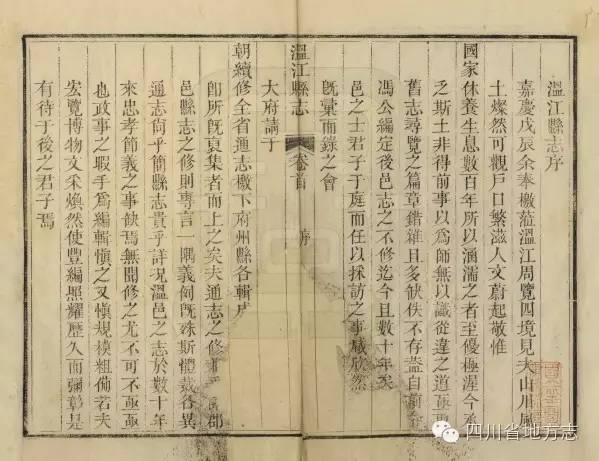 溫江縣志序
嘉慶戊辰余奉檄蒞溫江周覽四境見夫山川風
土燦然可觀戶口繁滋人文蔚起敬惟
國家休養生息數百年所以涵濡之者至優極渥今
之斯土非得前事以爲師無以識從違之道亟
舊志尋覽之篇章錯雜且多缺佚不存蓋自前
馮公編定後邑志之不修迄今且數十年矣
邑之士君子于庭而任以採訪之事咸欣然
旣彙而錄之會
大府請于
溫江縣志
卷首
序
朝續修全省通志檄下府州縣各輯
卽所旣夏集者而上之矣夫通志之修 郡
邑縣志之修則專言一隅義例旣殊斯體裁各異
通志尙乎簡縣志貴乎詳况溫邑之志於數十年
來忠孝節義之事缺焉無聞修之尤不可不亟亟
也政事之暇手爲編輯愼之又愼規模粗備若夫
宏覽博物文采煥然使豐編照耀歷久而彌彰是
有待于後之君子焉
四川省地方志